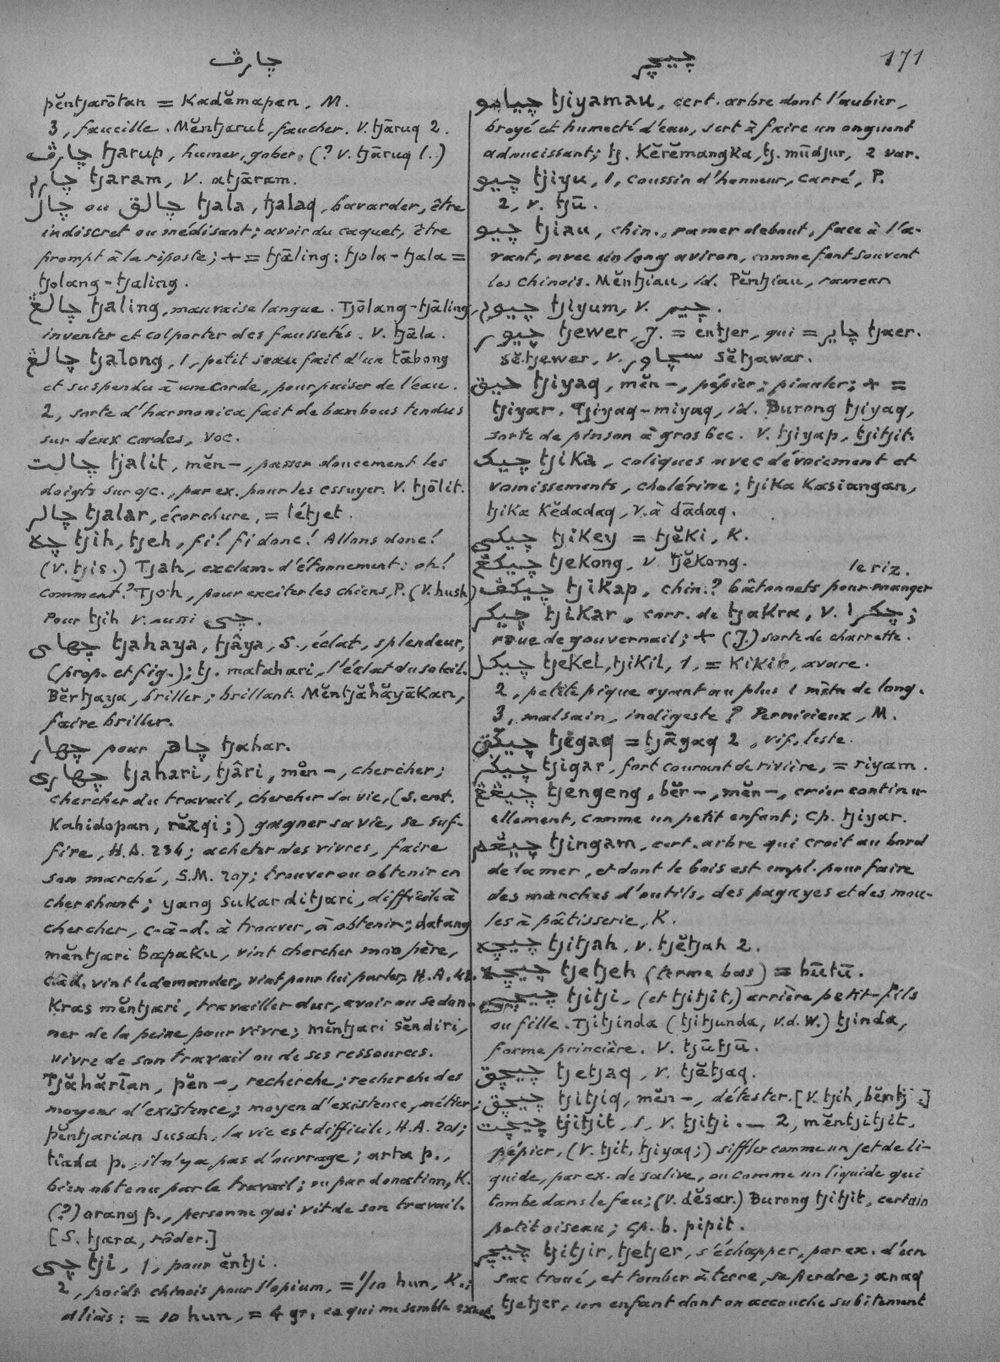 چارڤ
چيچر
171
pĕntjarōtan = Kadĕmapan, M.
3, faucille. Mĕntjarut, faucher. V. tjāruq 2.
چارڤ tjarup, humer, gober. (? V. tjāruq 1.)
چارم tjaram, V. atjāram.
چال ou چالق tjala, tjalaq, bavarder, être
indiscret ou médisant; avoir du caquet, être
prompt à la riposte; + = tjāling; tjola-tjala =
tjolang-tjaling.
چالڠ tjaling, mauvaise langue. Tjōlang-tjāling,
inventer et colporter des faussetés. V. tjāla.
چالڠ tjalong, 1, petit seau fait d'un tābong
et suspendu à une corde, pour puiser de l'eau.
2, sorte d'harmonica fait de bambous tendus
sur deux cordes, voc.
چالت tjalit, mĕn–, passer doucement les
doigts sur qc., par ex. pour les essuyer. V. tjōlit.
چالر tjalar, écorchure, = létjet.
چه tjih, tjeh, fi! fi donc! Allons donc!
(V. tjis.) Tjah, exclam. d'étonnement: oh!
comment? Tjoh, pour exciter les chiens, P. (V. hush)
Pour tjih V. aussi چي.
چهاي tjahaya, tjâya, S., éclat, splendeur,
(prop. et fig.); tj. matahari, l'éclat du soleil.
Bĕrtjaya, briller; brillant. Mĕntjăhăyākan,
faire briller.
چهار pour چاهر tjahar.
چهاري tjahari, tjâri, mĕn–, chercher;
chercher du travail, chercher sa vie, (s. ent.
Kahidopan, rĕzqi;) gagner sa vie, se suf-
fire, H.A. 234; acheter des vivres, faire
son marché, S.M. 207; trouver ou obtenir en
cherchant; yang sukar ditjari, difficile à
chercher, c-à-d. à trouver, à obtenir; datang
mĕntjari bapaku, vint chercher mon père,
càd. vint le demander, vint pour lui parler, H.A. 42.
Kras mĕntjari, travailler dur, avoir ou se don-
ner de la peine pour vivre; mĕntjari sĕndiri,
vivre de son travail ou de ses ressources.
Tjăhărīan, pĕn–, recherche; recherche des
moyens d'existence; moyen d'existence, métier;
pĕntjarian susah, la vie est difficile, H.A. 201;
tiada p., il n'y a pas d'ouvrage; arta p.,
bien obtenu par le travail; ou par donation, K.
(?) orang p., personne qui vit de son travail.
[S. tjara, rôder.]
چي tji, 1, pour ĕntji.
2, poids chinois pour l'opium, = 1/10 hun, K.;
aliàs: = 10 hun, = 4 gr., ce qui me semble exact
چيامو tjiyamau, cert. arbre dont l'aubier,
broyé et humecté d'eau, sert à faire un onguent
adoucissant; tj. Kĕrĕmangka, tj. mūdjur, 2 var.
چيو tjiyu, 1, coussin d'honneur, carré, P.
2, v. tjū.
چيو tjiau, chin., ramer debout, face à l'a-
vant, avec un long aviron, comme font souvent
les chinois. Mĕntjiau, id. Pĕntjiau, rameur
چيوم tjiyum, v. چيم.
چيور tjewer, J. = entjer, qui = چاير tjaer.
sĕtjewer, v. سچاور sĕtjawar.
چيق tjiyaq, mĕn–, pépier; piauler; + =
tjiyar. Tjiyaq-miyaq, id. Burong tjiyaq,
sorte de pinson à gros bec. V. tjiyap, tjitjit.
چيك tjika, coliques avec dévoiement et
vomissements, cholérine; tjika Kasiangan,
tjika Kĕdadaq, v. à dādaq.
چيكي tjikey = tjĕki, K.
چيكڠ tjekong, v. tjĕkong.
چيكڤ tjikap, chin.? bâtonnets pour manger le riz.
چيكر tjikar, corr. de tjakra, v. چكرا;
roue de gouvernail; + (J) sorte de charrette.
چيكل tjekel, tjikil, 1, = Kikir, avare.
2, petite pique ayant au plus 1 mètre de long.
3, malsain, indigeste? Pernicieux, M.
چيگق tjĕgaq = tjāgaq 2, vif, leste.
چيگر tjigar, fort courant de rivière, = riyam.
چيڠڠ tjengeng, bĕr–, mĕn–, crier continu-
ellement, comme un petit enfant; cp. tjiyar.
چيڠم tjingam, cert. arbre qui croit au bord
de la mer, et dont le bois est empl. pour faire
des manches d'outils, des pagayes et des mou-
les à pâtisserie, K.
چيچه tjitjah, v. tjĕtjah 2.
چيچه tjetjeh (terme bas) = būtū.
چيچي tjitji, (et tjitjit,) arrière petit-fils
ou fille. Tjitjinda (tjitjunda, v.d.W.) tjinda,
forme princière. V. tjūtjū.
چيچق tjetjaq, v. tjĕtjaq.
چيچق tjitjiq, mĕn–, détester. [V. tjih, bĕntji.]
چيچت tjitjit, 1, v. tjitji. – 2, mĕntjitjit,
pépier, (V. tjit, tjiyaq;) siffler comme un jet de li-
quide, par ex. de salive, ou comme un liquide qui
tombe dans le feu; (V. dĕsar.) Burong tjitjit, certain
petit oiseau; cp. b. pipit.
چيچر tjitjir, tjetjer, s'échapper, par ex. d'un
sac troué, et tomber à terre, se perdre; anaq
tjetjer, un enfant dont on accouche subitement